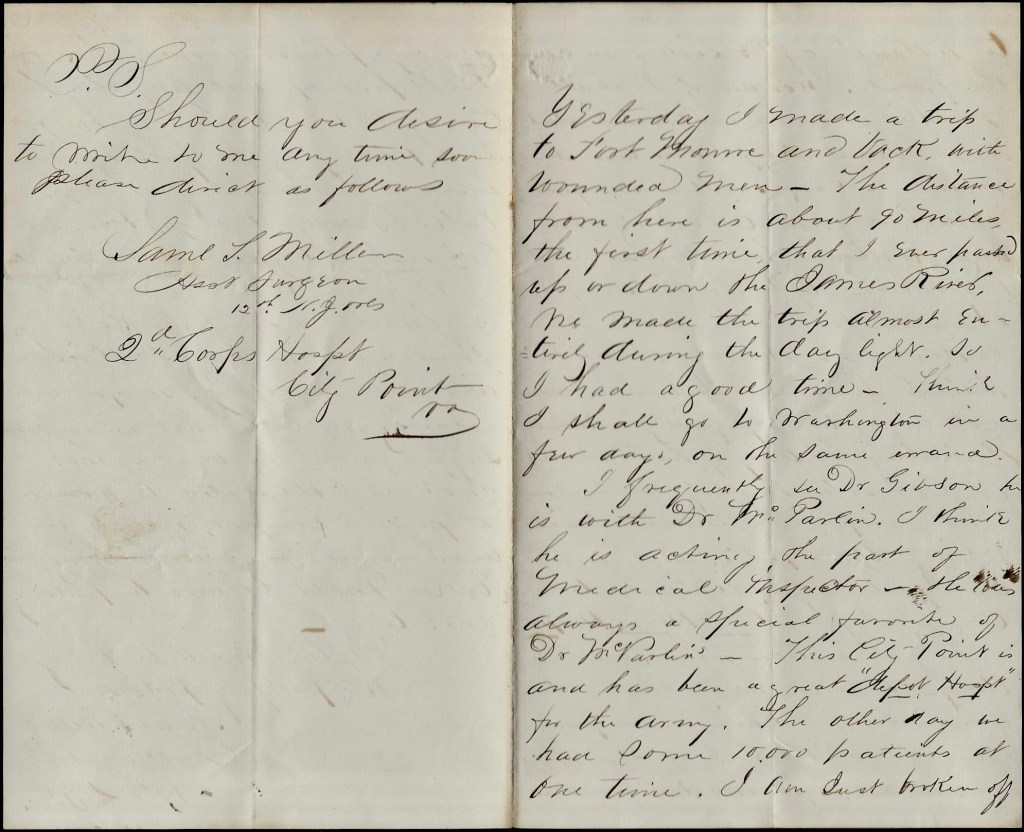 P.S.
Should you desire
to write to me any time soon
please direct as follows
Saml S. Miller
Asst Surgeon
12th N.J. Vols
2d Corps Hospt
City Point
Va
Yesterday I made a trip
to Fort Monroe and back, with
wounded men — The distance
from here is about 90 miles,
the first time, that I ever passed
up or down the James River,
We made the trip almost en-
-tirely during the day light. So
I had a good time — Think
I shall go to Washington in a
few days, on the same errand.
I frequently see Dr Gibson he
is with Dr McParlin. I think
he is acting the part of
Medical Inspector — He was
always a special favorite of
Dr McParlins — This City Point is
and has been a great "depot Hospt"
for the army. The other day we
had some 10,000 patients at
one time. I am just broken off